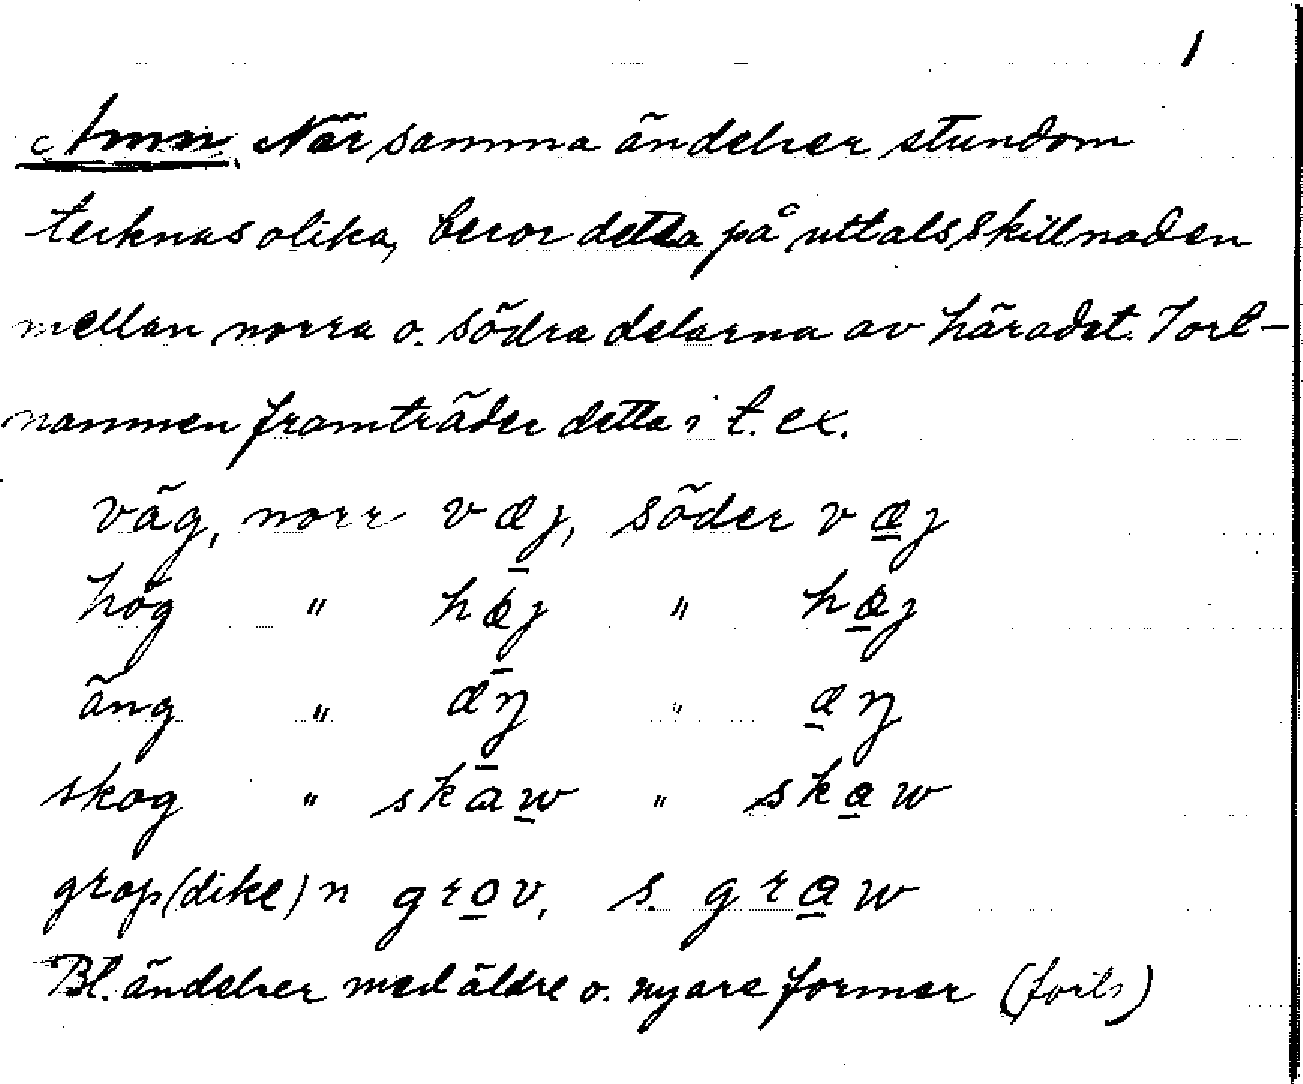 1
Anm. När samma ändelser stundom
tecknas olika, beror detta på uttalsskillnaden
mellan norra o. södra delarna av häradet. I ort-
namnen framträder detta i t. ex.
väg, norr væj, söder væj
hög " hæj " hæj
äng " æŋ " æŋ
skog " skaw " skaw
grop (dike) n grov, s. graw
Bl. ändelser med äldre o. nyare former (forts)